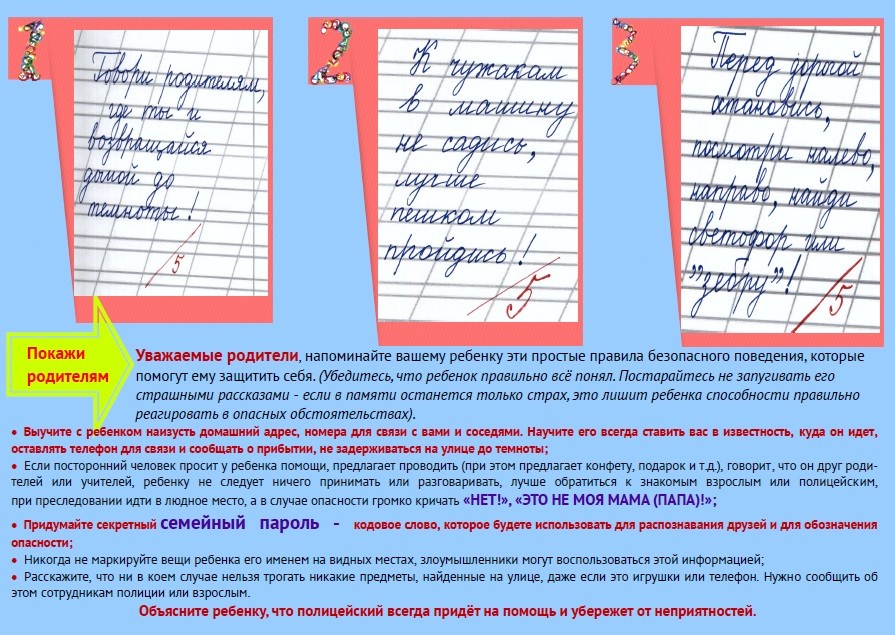 1
Говори родителям,
где ты и
возвращайся
домой до
темноты!
5
2
К чужакам
в машину
не садись,
лучше
пешком
пройдись!
5
3
Перед дорогой
остановись,
посмотри налево,
направо, найди
светофор или
"зебру"!
5
Покажи
родителям
Уважаемые родители, напоминайте вашему ребенку эти простые правила безопасного поведения, которые
помогут ему защитить себя. (Убедитесь, что ребенок правильно всё понял. Постарайтесь не запугивать его
страшными рассказами - если в памяти останется только страх, это лишит ребенка способности правильно
реагировать в опасных обстоятельствах).
• Выучите с ребенком наизусть домашний адрес, номера для связи с вами и соседями. Научите его всегда ставить вас в известность, куда он идет,
оставлять телефон для связи и сообщать о прибытии, не задерживаться на улице до темноты;
• Если посторонний человек просит у ребенка помощи, предлагает проводить (при этом предлагает конфету, подарок и т.д.), говорит, что он друг роди-
телей или учителей, ребенку не следует ничего принимать или разговаривать, лучше обратиться к знакомым взрослым или полицейским,
при преследовании идти в людное место, а в случае опасности громко кричать «НЕТ!», «ЭТО НЕ МОЯ МАМА (ПАПА)!»;
• Придумайте секретный семейный пароль - кодовое слово, которое будете использовать для распознавания друзей и для обозначения
опасности;
• Никогда не маркируйте вещи ребенка его именем на видных местах, злоумышленники могут воспользоваться этой информацией;
• Расскажите, что ни в коем случае нельзя трогать никакие предметы, найденные на улице, даже если это игрушки или телефон. Нужно сообщить об
этом сотрудникам полиции или взрослым.
Объясните ребенку, что полицейский всегда придёт на помощь и убережет от неприятностей.